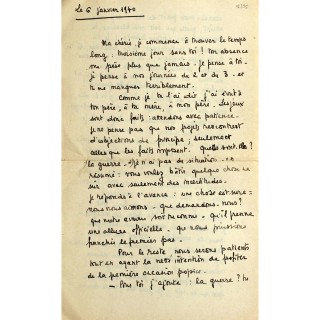 Le 6 janvier 1940
Ma chérie, je commence à trouver le temps
long : troisième jour sans toi ! ton absence
me pèse plus que jamais. Je pense à toi,
je pense à nos journées du 2 et du 3. et
tu me manques terriblement.
Comme je te l'ai dit, j'ai écrit à
ton père, à ta mère, à mon père. Les jeux
sont donc faits : attendons avec patience.
Je ne pense pas que nos projets rencontrent
d'objections de principe ; seulement
celles que les faits imposent. Quelles sont-elles ?
la guerre. Je n'ai pas de situation. en
résumé : vous voulez bâtir quelque chose de
sûr avec seulement des incertitudes.
Je réponds à l'avance : une chose est sûre =
nous nous aimons. que demandons-nous ?
que notre amour soit reconnu. qu'il prenne
une allure officielle. que nous puissions
franchir le premier pas.
Pour le reste nous serons patients
tout en ayant la nette intention de profiter
de la première occasion propice.
— Pour toi j'ajoute : la guerre ? tu